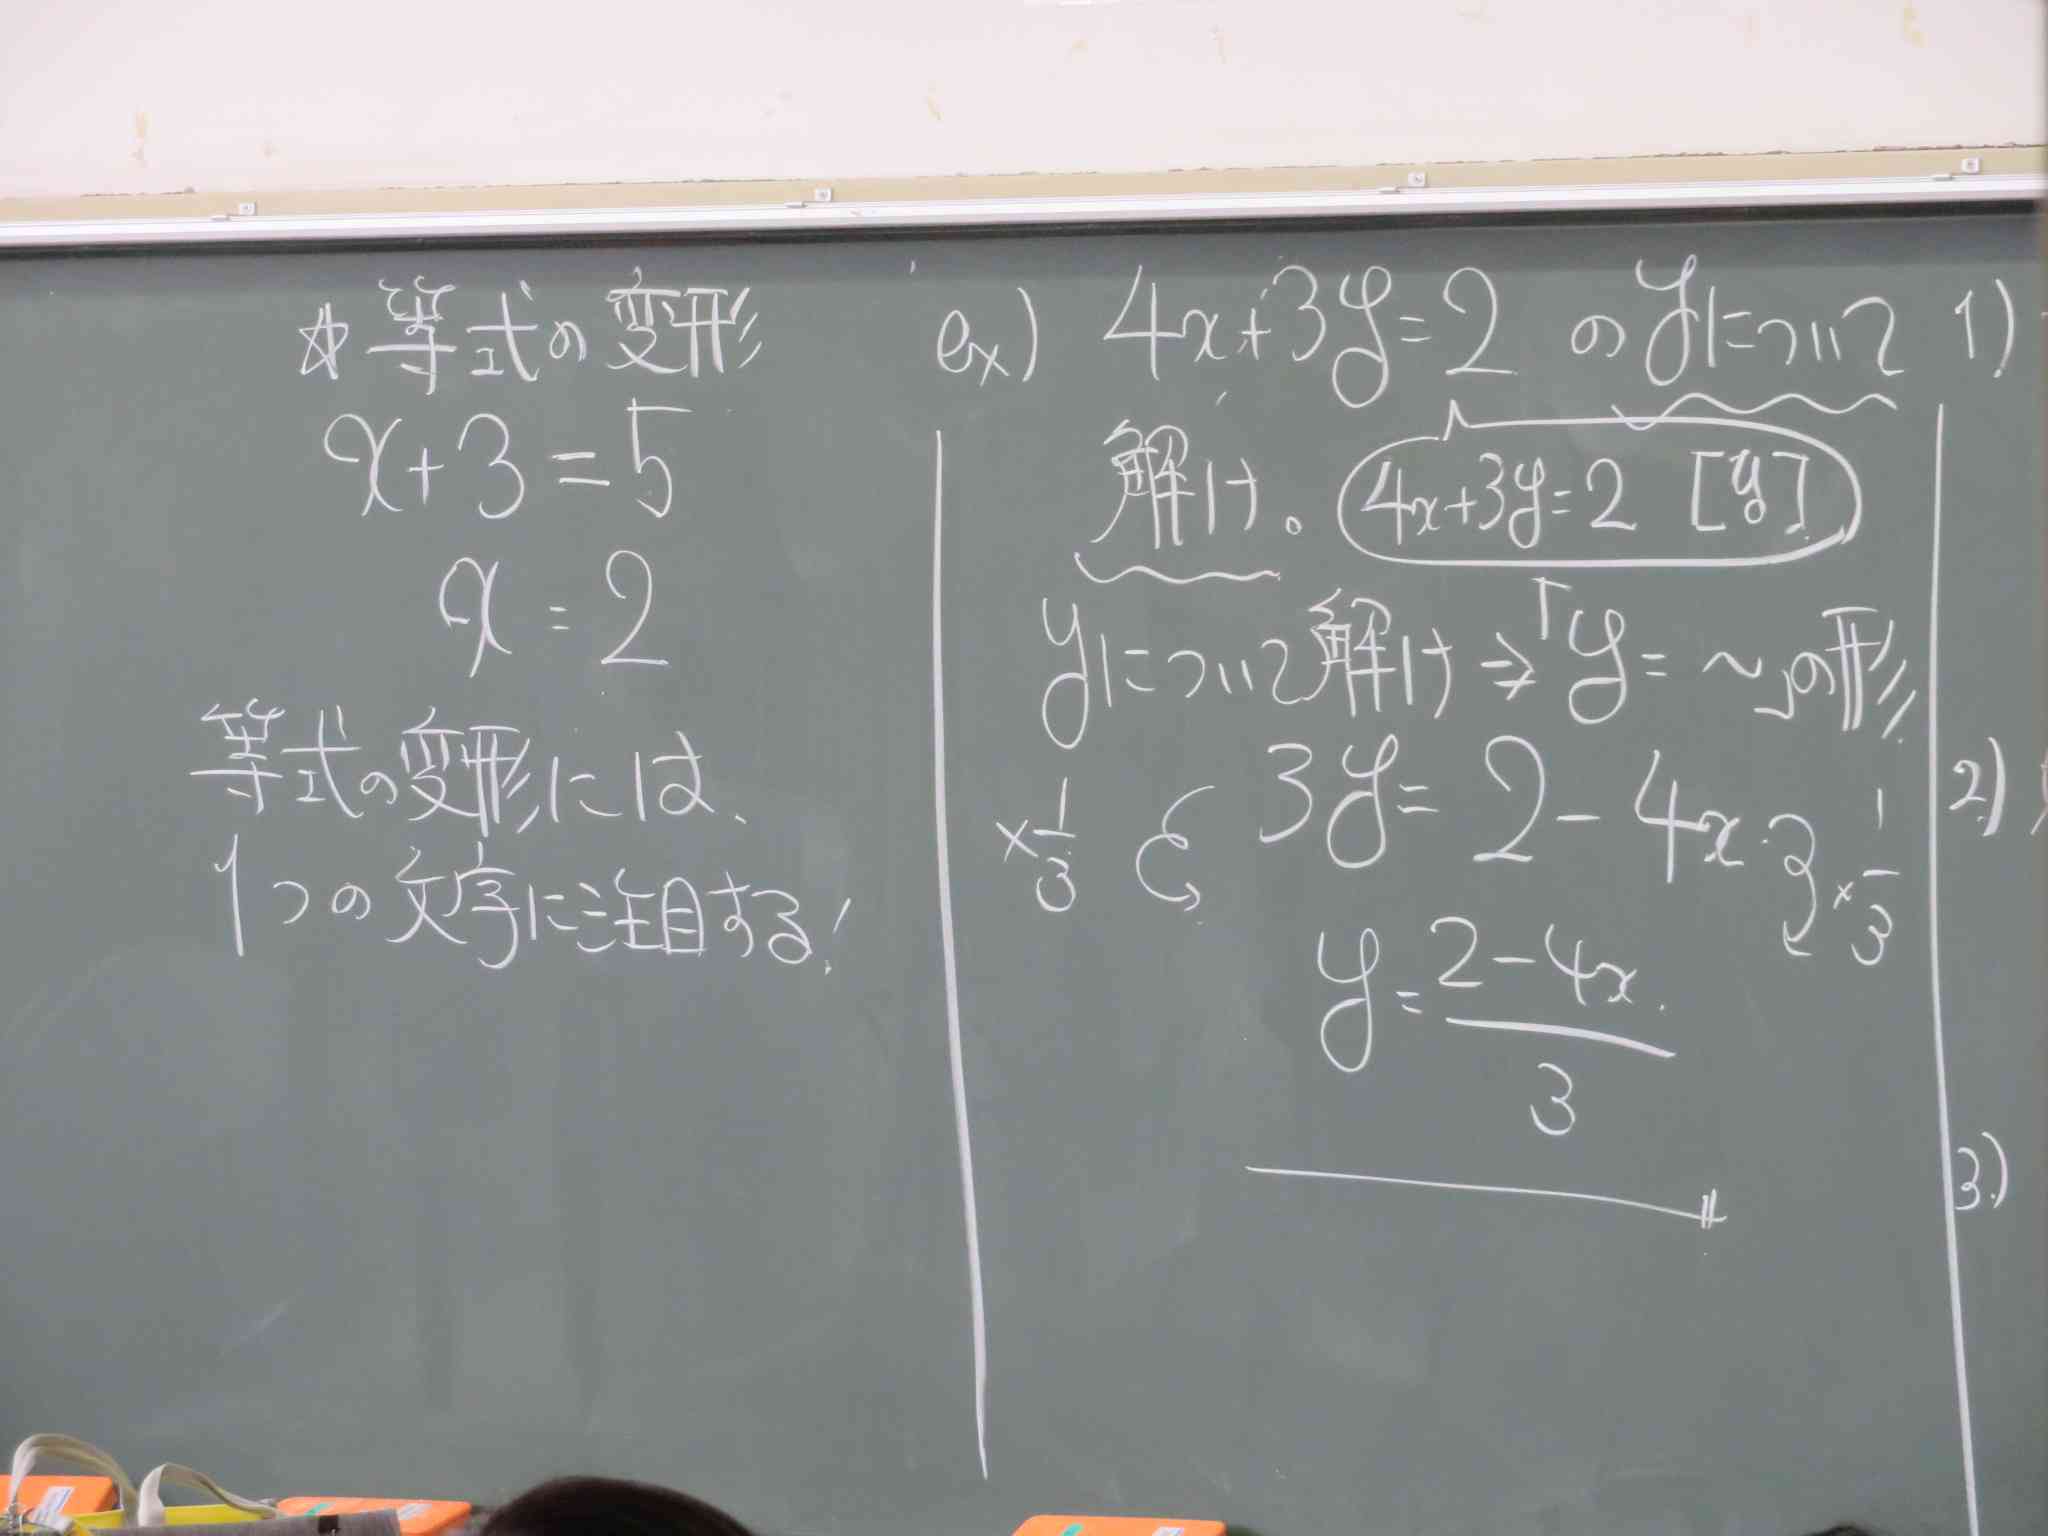 ☆等式の変形
x+3=5
x=2
等式の変形には、
1つの文字に注目する!
ex) 4x+3y=2 のyについて
解け。 4x+3y=2 [y]
yについて解け⇒「y=~」の形
×1/3 3y=2-4x ×1/3
y=(2-4x)/3
1)
2)
3)